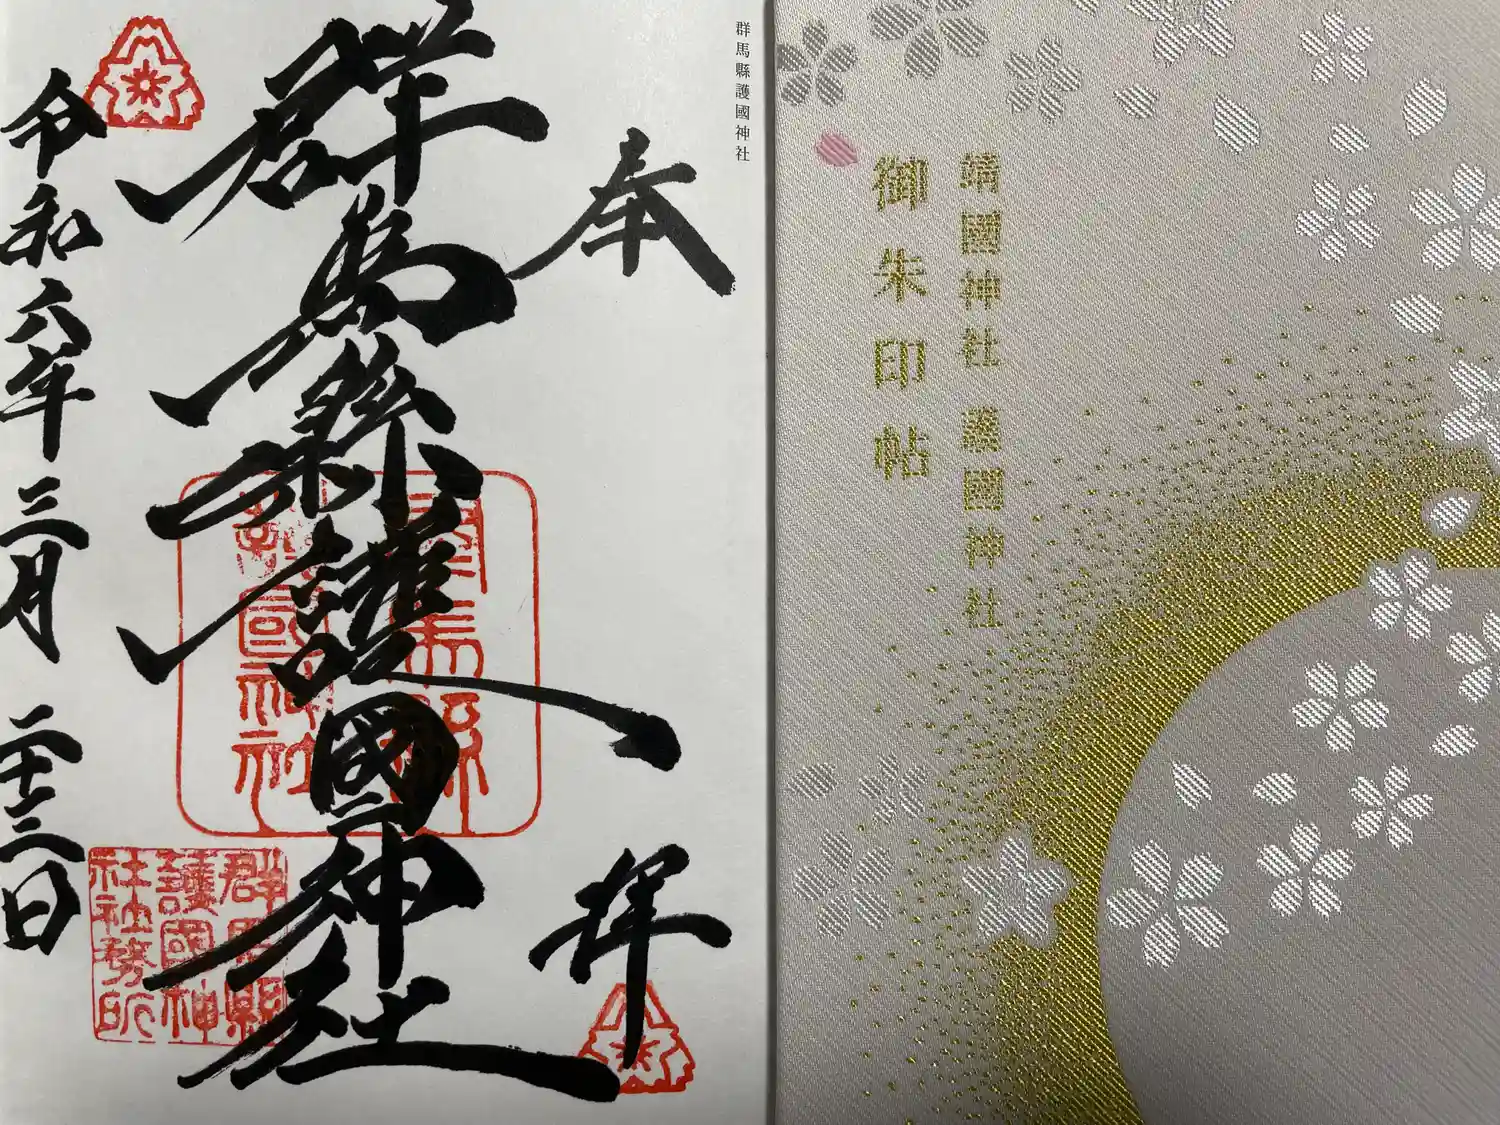 群馬縣護國神社
奉拝
群馬縣護國神社
令和六年三月二十三日
群馬縣
護國神社
群馬縣
護國神
社社務所
靖國神社 護國神社
御朱印帖